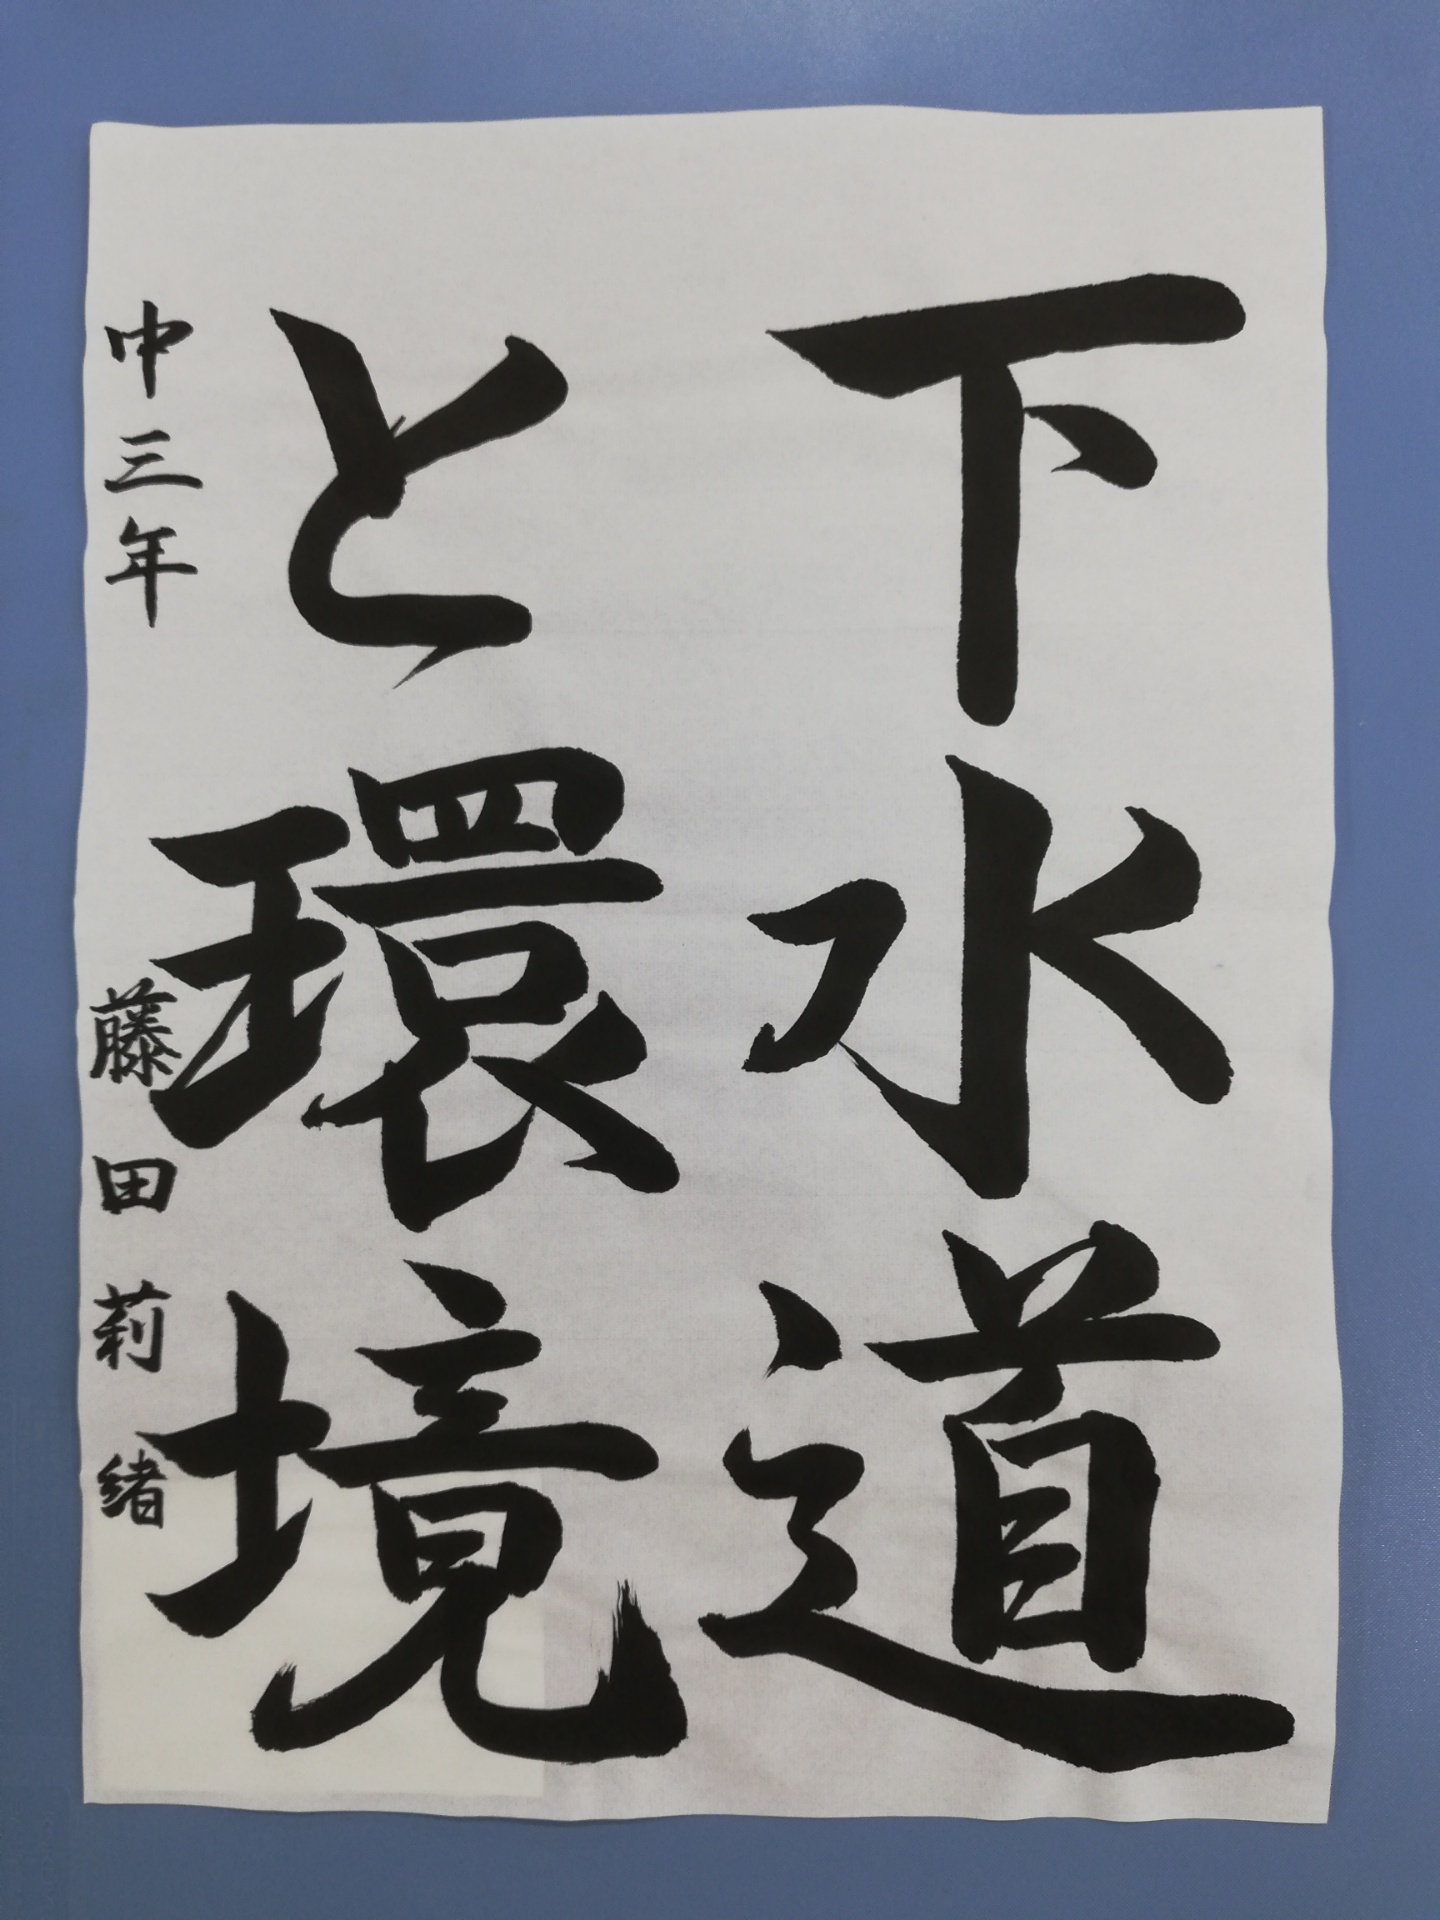 下水道
と環境
中三年 藤田莉緒